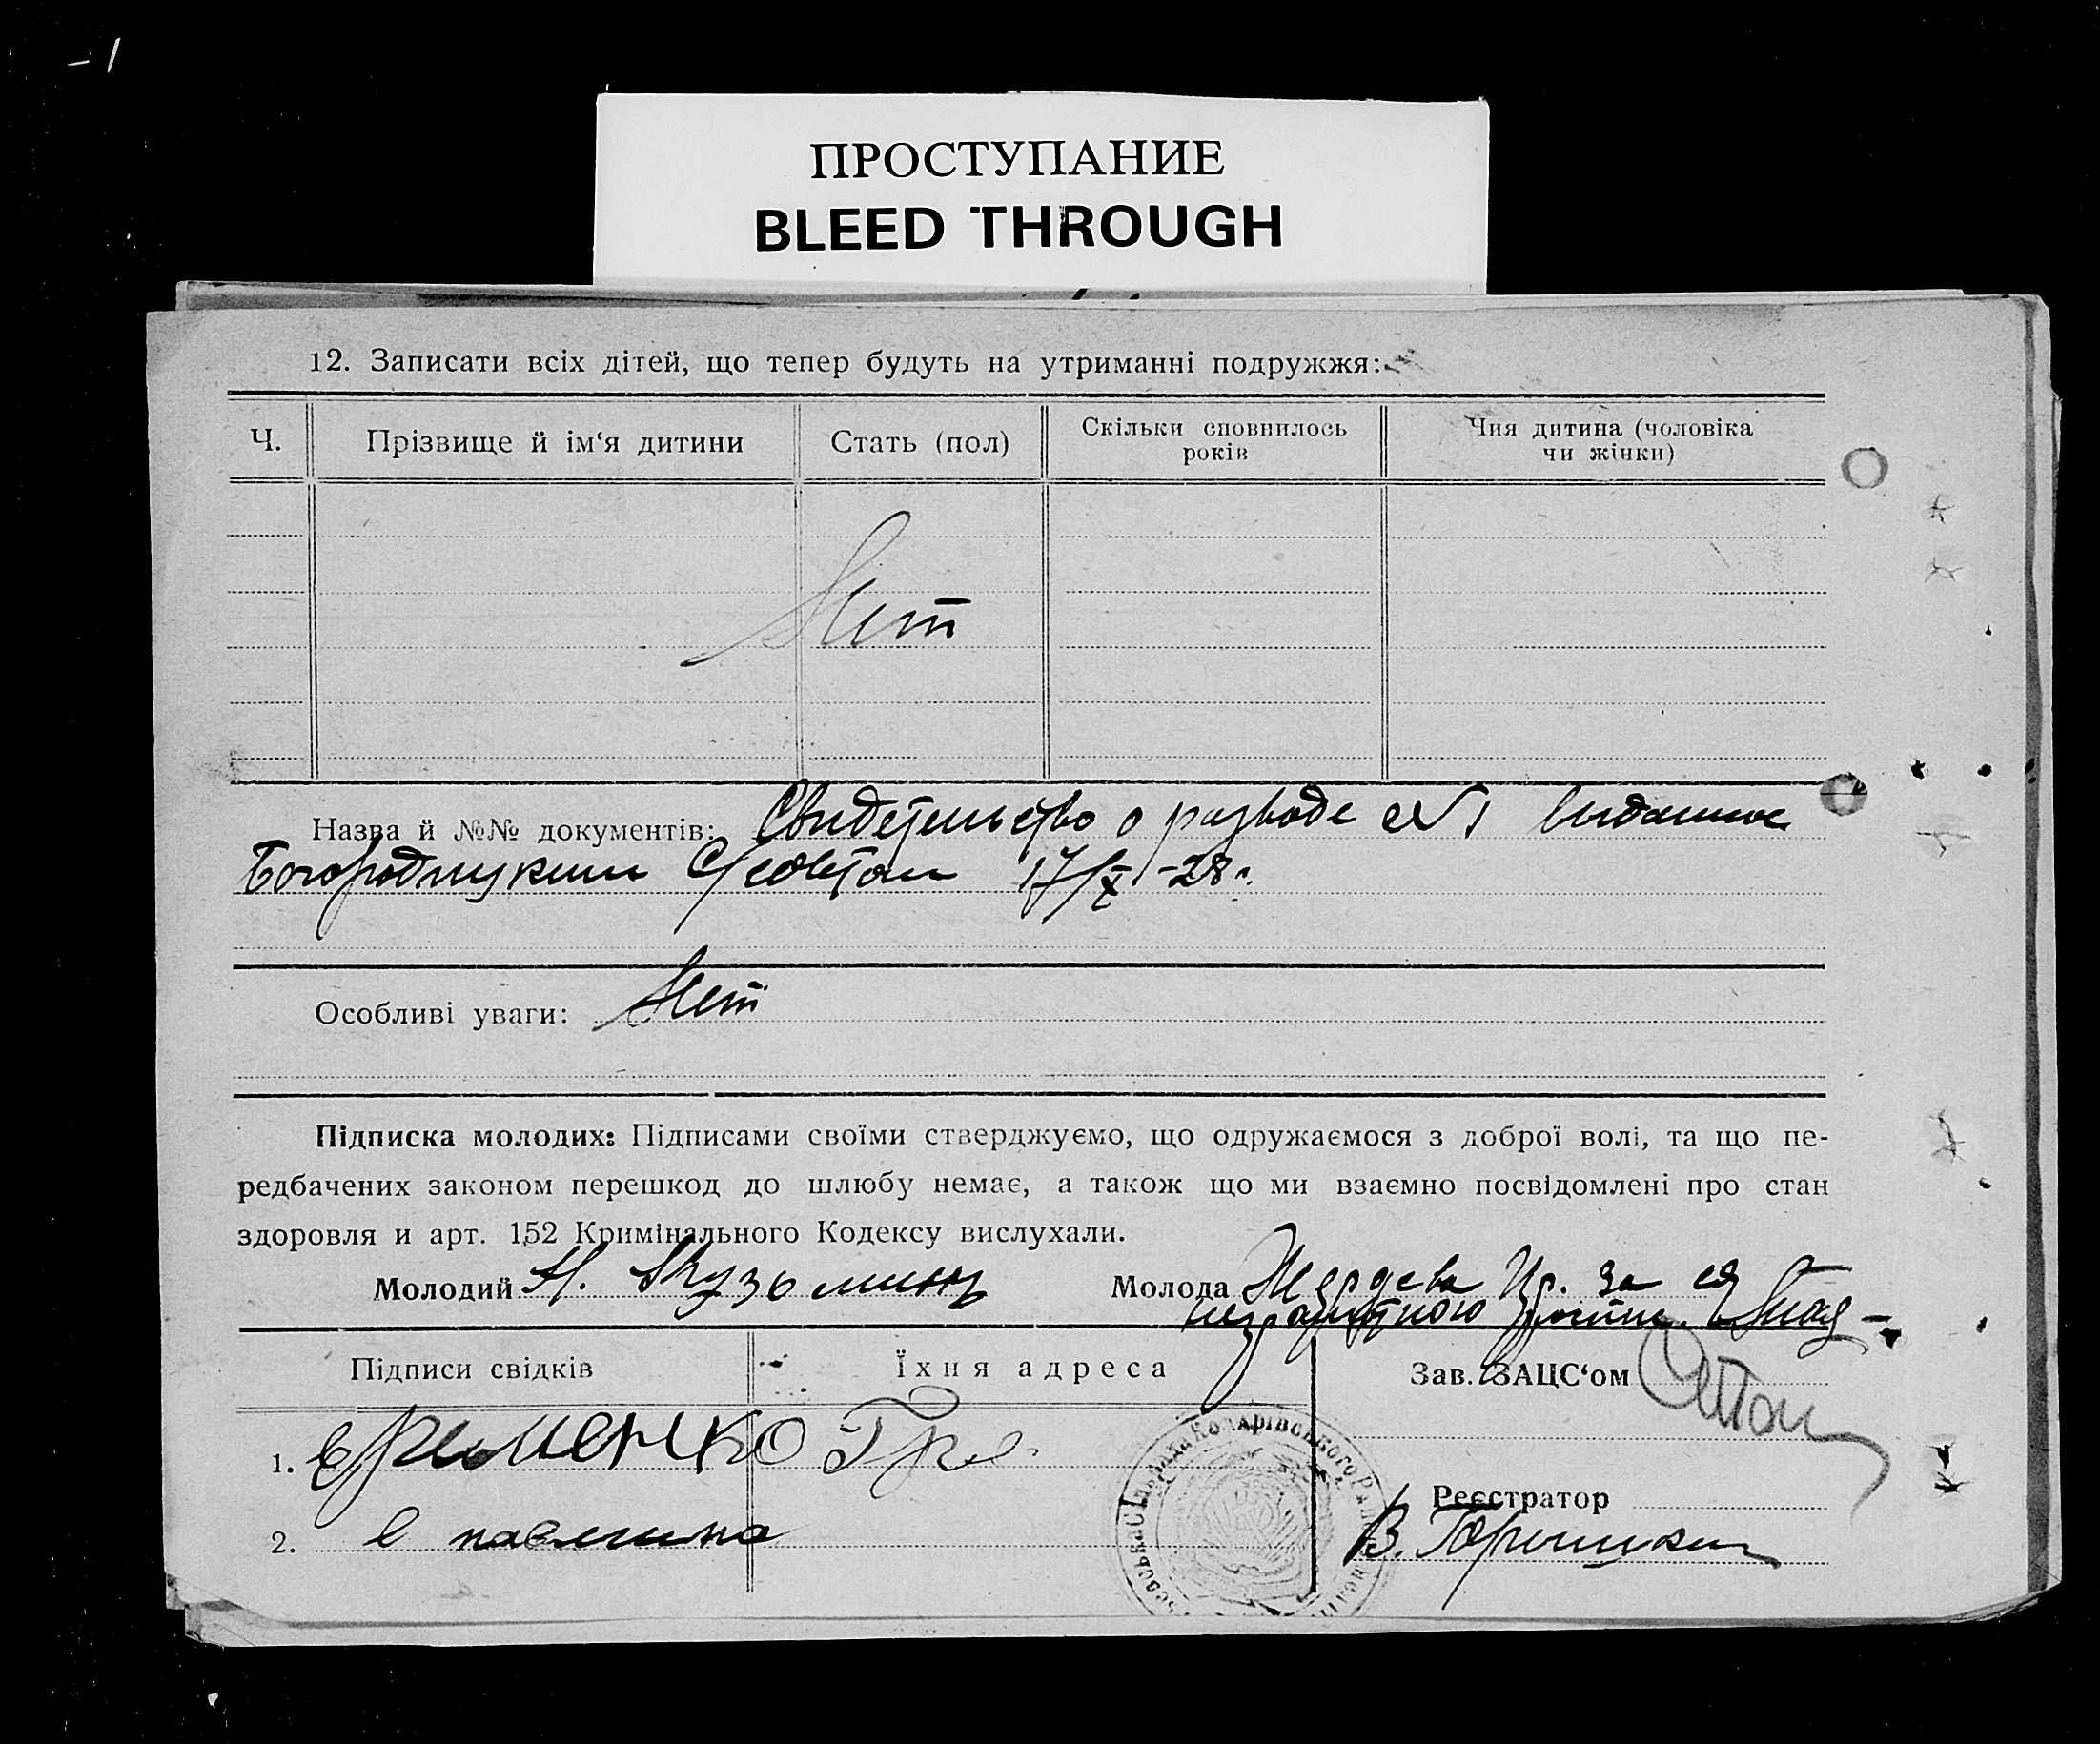 ПРОСТУПАНИЕ
BLEED THROUGH
12. Записати всіх дітей, що тепер будуть на утриманні подружжя:
Ч. Прізвище й ім‘я дитини Стать (пол) Скільки сповнилось років Чия дитина (чоловіка чи жінки)
Нет
Назва й №№ документів: Свидетельство о разводе №1 выданное
Богородицким С/советом 17/X-28г.
Особливі уваги: Нет
Підписка молодих: Підписами своїми стверджуємо, що одружаємося з доброї волі, та що пе-
редбачених законом перешкод до шлюбу немає, а також що ми взаємно посвідомлені про стан
здоровля и арт. 152 Кримінального Кодексу вислухали.
Молодий Кузьминц Молода за ея
неграмотною
Підписи свідків Їхня адреса Зав. ЗАЦС‘ом
1. Єременко Гр
Реєстратор
2.